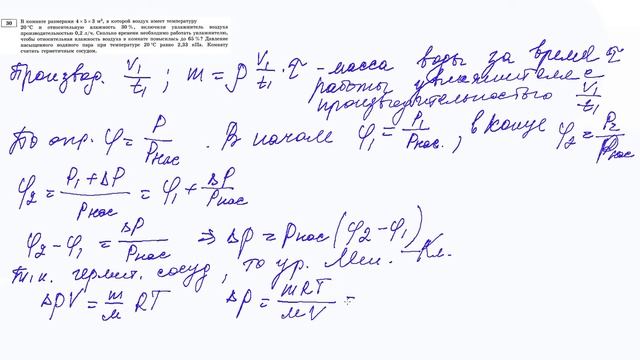 30
В комнате размерами 4 × 5 × 3 м³, в которой воздух имеет температуру
20 °C и относительную влажность 30 %, включили увлажнитель воздуха
производительностью 0,2 л/ч. Сколько времени необходимо работать увлажнителю,
чтобы относительная влажность воздуха в комнате повысилась до 65 %? Давление
насыщенного водяного пара при температуре 20 °C равно 2,33 кПа. Комнату
считать герметичным сосудом.
Производ. V₁/t₁ ; m = ρ V₁/t₁ · τ - масса воды за время τ
работы увлажнителя с
производительностью V₁/t₁
По опр. φ = P/Pнас . В начале φ₁ = P₁/Pнас. , в конце φ₂ = P₂/Pнас
φ₂ = (P₁ + ΔP)/Pнас = φ₁ + ΔP/Pнас
φ₂ - φ₁ = ΔP/Pнас ⇒ Δp = Pнас (φ₂ - φ₁)
Т.к. гермет. сосуд, то ур. Мен. - Кл.
ΔpV = m/M RT Δp = mRT/MV =